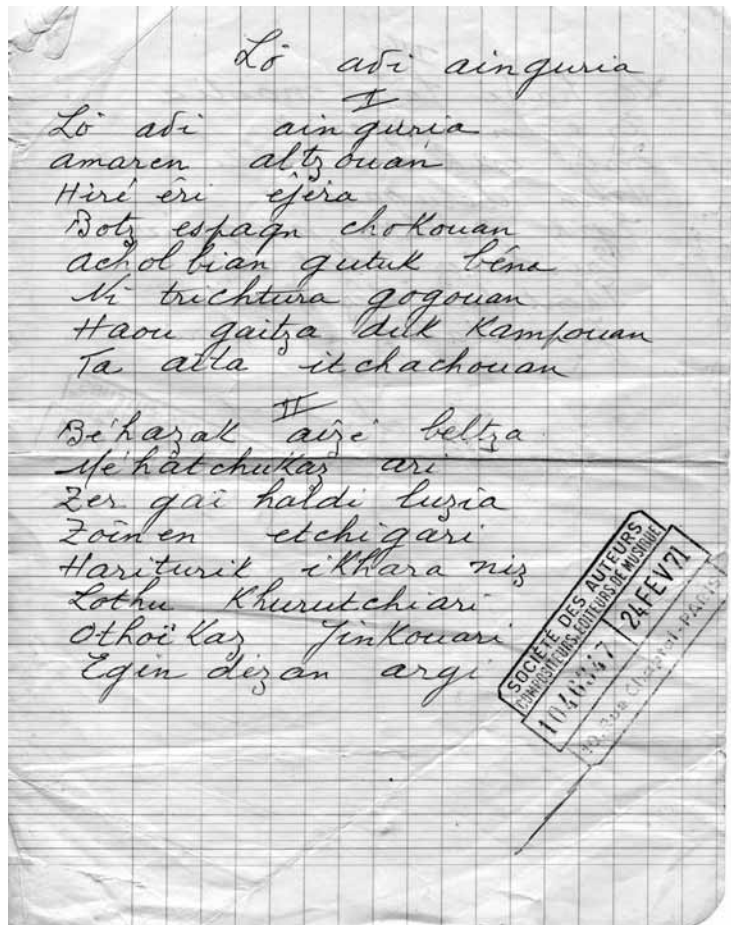 Lo adi ainguria
I
Lo adi ainguria
amaren altzouan
Hire êri ejéra
Botz espagn chokouan
achol bian gutuk béna
Ni trichtura gogouan
Haou gaitza duk Kampouan
Ta aita itchachouan
II
Béhazak aizé beltza
Méhatchukaz ari
Zer gaï haldi luzia
Zoïnen etchigari
Hariturik ikhara niz
Lothu Khurutchiari
Othoï Kaz Jinkouari
Egin dezan argi
SOCIÉTÉ DES AUTEURS
COMPOSITEURS, EDITEURS DE MUSIQUE
1046347 24 FEV 71
10, Rue Chaptal - PARIS